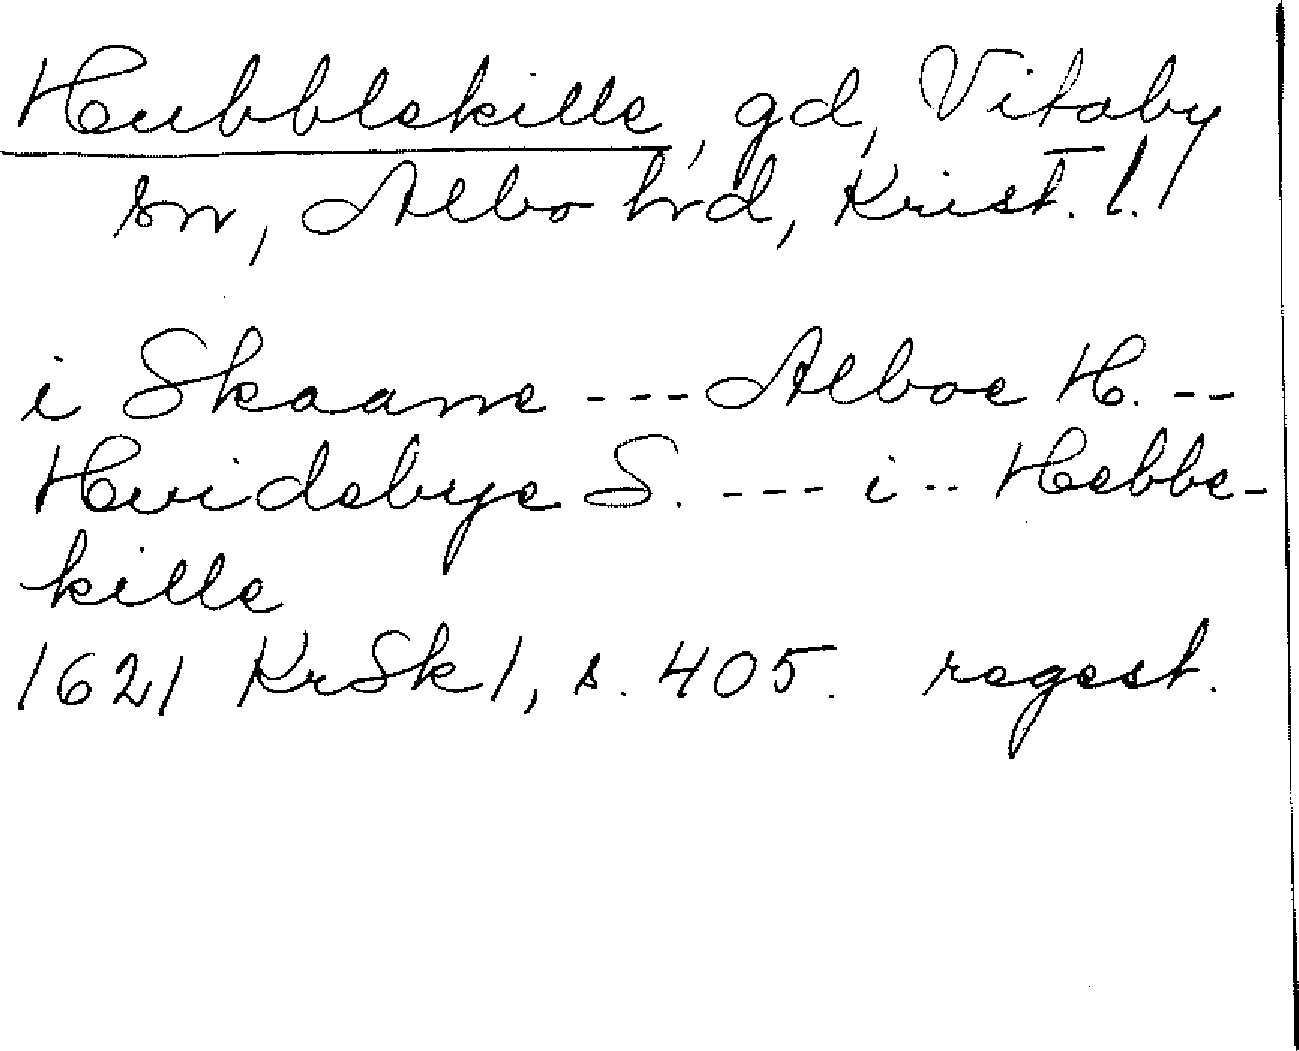 Hubbleskille, gd, Vitaby
sn, Albo hrd, Krist. l.
i Skaane --- Alboe H. --
Hvidebye S. --- i -- Hebbe-
kille
1621 KrSk 1, s. 405. regest.